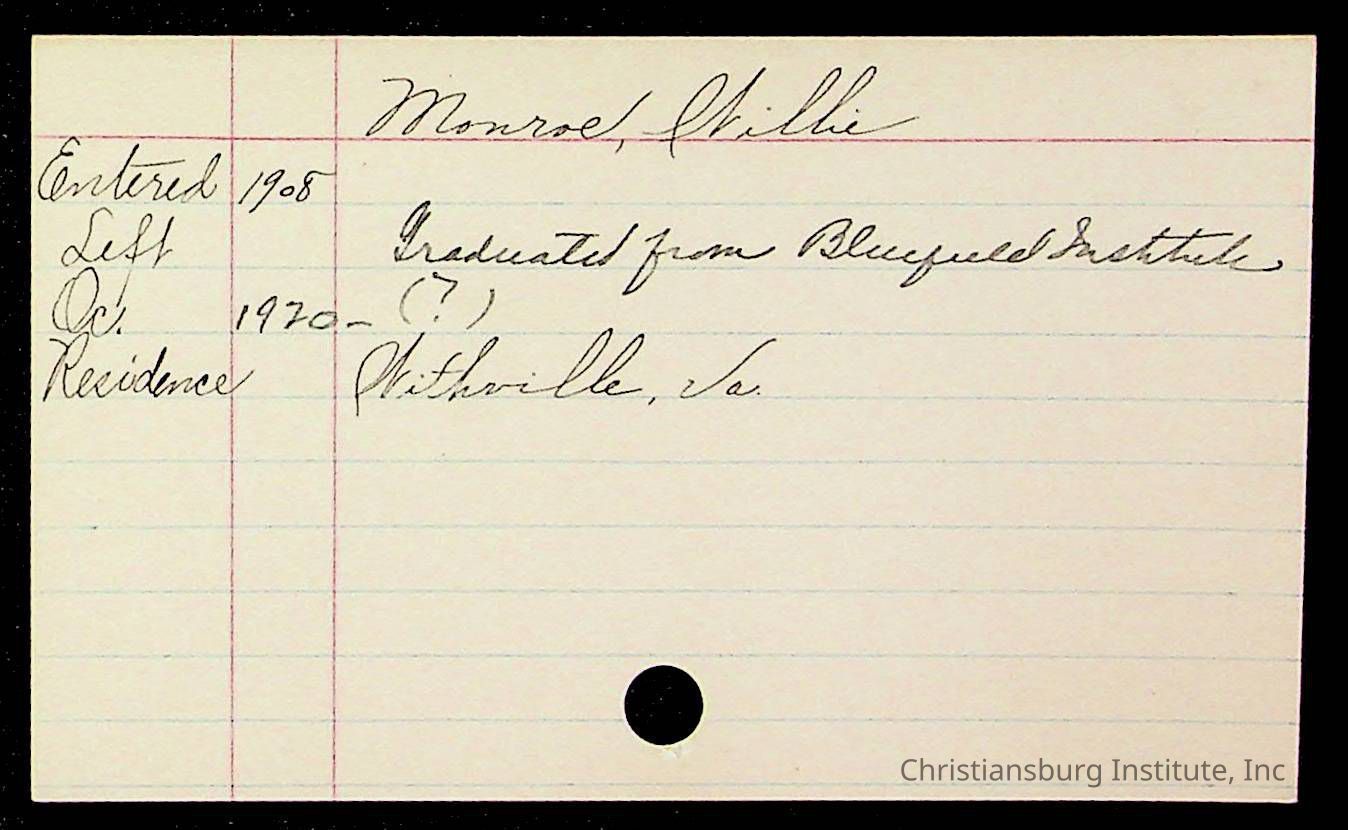 Monroe, Willie
Entered 1908
Left Graduated from Bluefield Institute
Oc. 1920- (?)
Residence Withville, Va.
Christiansburg Institute, Inc